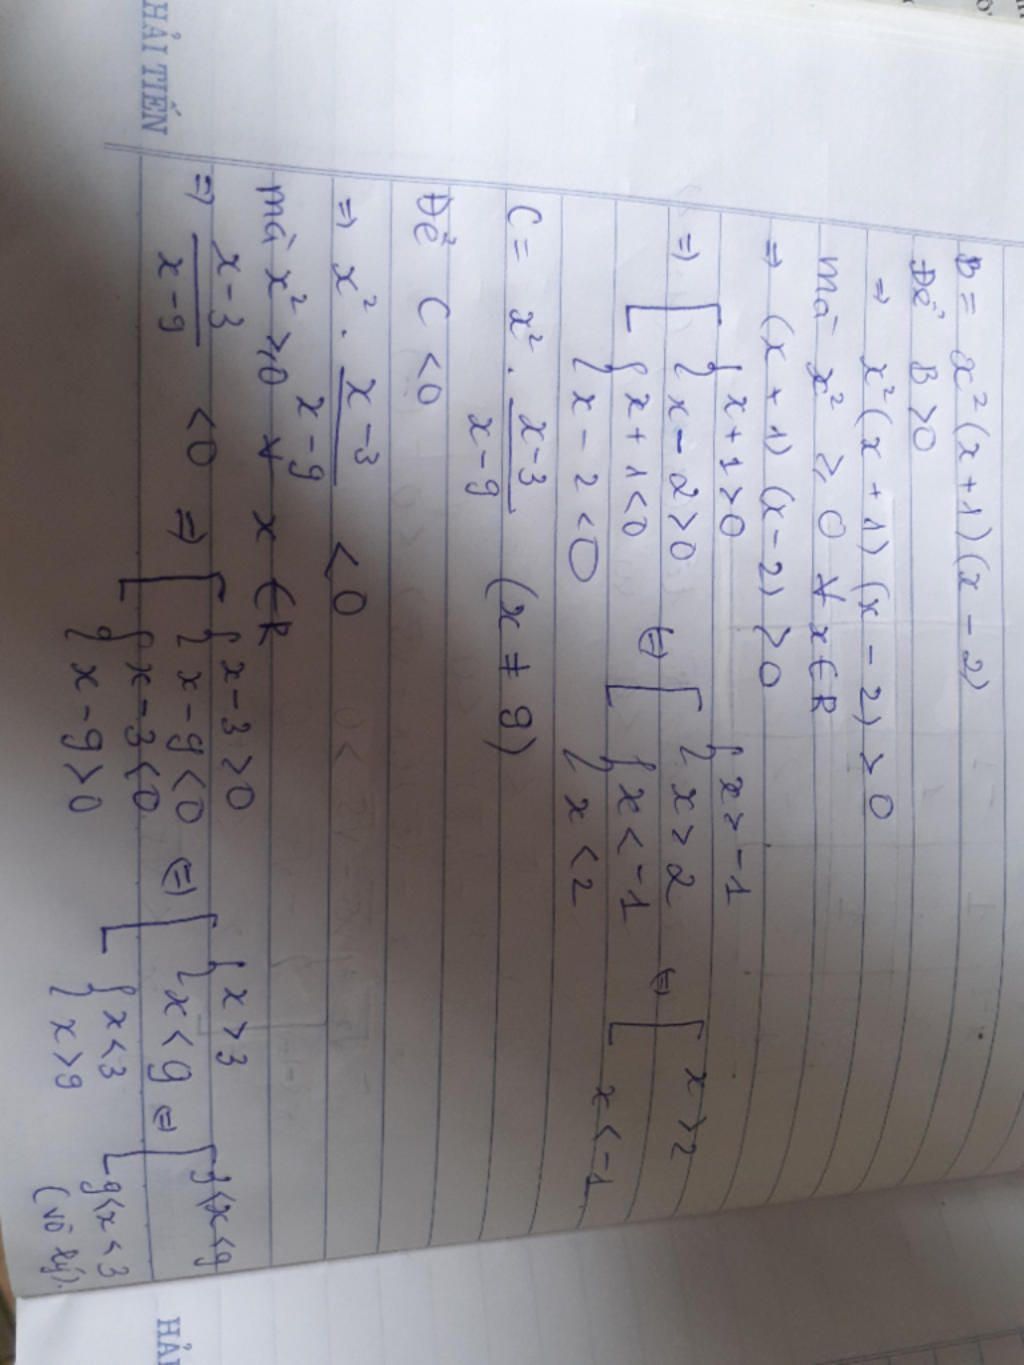 B = x²(x+1)(x-2)
Để B>0
=> x²(x+1)(x-2)>0
mà x² ≥ 0 ∀ x ∈ R
=> (x+1)(x-2)>0
=> [ { x+1>0 { x-2>0 { x+1<0 { x-2<0 <=> [ { x>-1 { x>2 { x<-1 { x<2 <=> [ x>2 x<-1
C = x² . \frac{x-3}{x-9} (x ≠ 9)
Để C <0
=> x² . \frac{x-3}{x-9} <0
mà x² ≥0 ∀ x ∈ R
=> \frac{x-3}{x-9} <0 => [ { x-3>0 { x-9<0 { x-3<0 { x-9>0 <=> [ { x>3 { x<9 { x<3 { x>9 <=> [ 3<x<9 9<x<3
(vô lý).
HẢI TIẾN
HẢI